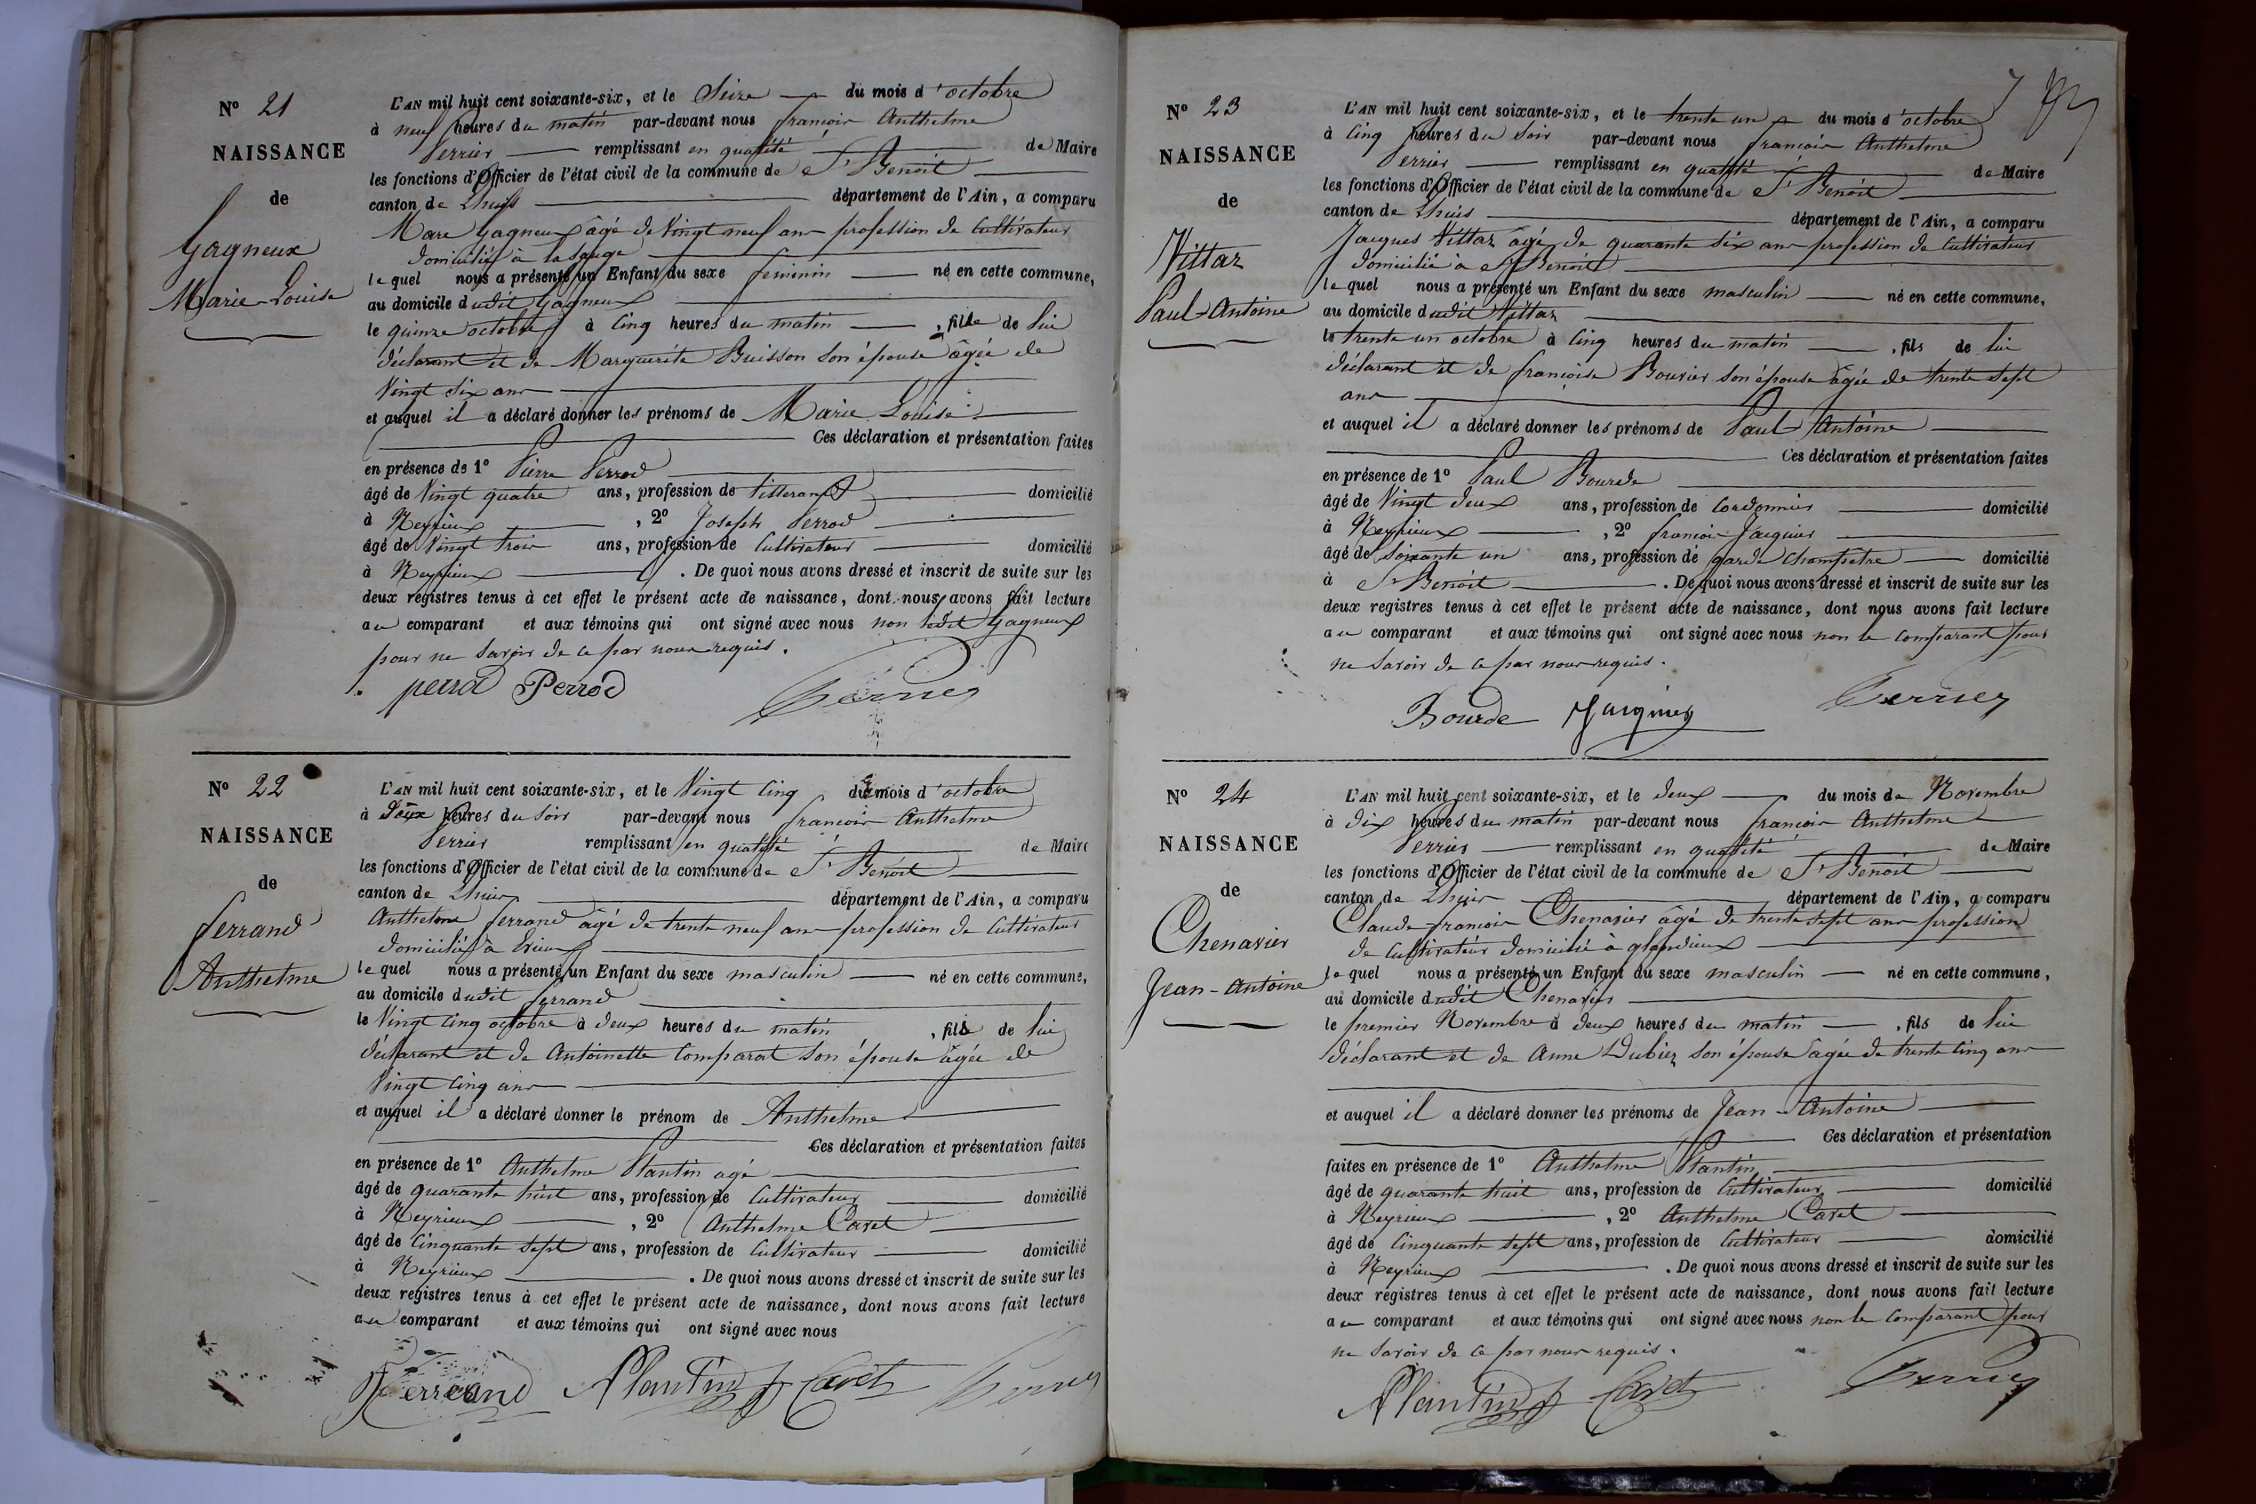 N° 21
NAISSANCE
de
Gagneux
Marie-Louise
L'AN mil huit cent soixante-six, et le Seize du mois d'octobre
à neuf heures du matin par-devant nous françois Anthelme
Perrier remplissant en qualité de Maire
les fonctions d'Officier de l'état civil de la commune de St Benoit
canton de Lhuis département de l'Ain, a comparu
Marc Gagneux âgé de Vingt neuf ans profession de Cultivateur
domicilié à la Sauge
lequel nous a présenté un Enfant du sexe feminin né en cette commune,
au domicile dudit Gagneux
le quinze octobre à Cinq heures du matin, fille de lui
déclarant et de Marguerite Buisson son épouse âgée de
Vingt six ans
et auquel il a déclaré donner les prénoms de Marie Louise
Ces déclaration et présentation faites
en présence de 1° Pierre Perrod
âgé de Vingt quatre ans, profession de tisserand domicilié
à Neyrieux, 2° Joseph Perrod
âgé de Vingt trois ans, profession de Cultivateur domicilié
à Neyrieux. De quoi nous avons dressé et inscrit de suite sur les
deux registres tenus à cet effet le présent acte de naissance, dont nous avons fait lecture
au comparant et aux témoins qui ont signé avec nous non ledit Gagneux
pour ne savoir de ce par nous requis.
perrod Perrod Perrier
N° 22
NAISSANCE
de
ferrand
Anthelme
L'AN mil huit cent soixante-six, et le Vingt Cinq du mois d'octobre
à heures du soir par-devant nous françois Anthelme
Perrier remplissant en qualité de Maire
les fonctions d'Officier de l'état civil de la commune de St Benoit
canton de Lhuis département de l'Ain, a comparu
Anthelme ferrand âgé de trente neuf ans profession de Cultivateur
domicilié à Crieux
lequel nous a présenté un Enfant du sexe masculin né en cette commune,
au domicile dudit ferrand
le Vingt Cinq octobre à deux heures du matin, fils de lui
déclarant et de Antoinette Comparat son épouse âgée de
Vingt Cinq ans
et auquel il a déclaré donner le prénom de Anthelme
Ces déclaration et présentation faites
en présence de 1° Anthelme Plantin agé
âgé de quarante huit ans, profession de Cultivateur domicilié
à Neyrieux, 2° Anthelme Cavet
âgé de Cinquante sept ans, profession de Cultivateur domicilié
à Neyrieux. De quoi nous avons dressé et inscrit de suite sur les
deux registres tenus à cet effet le présent acte de naissance, dont nous avons fait lecture
au comparant et aux témoins qui ont signé avec nous
Ferrand APlantin Cavet Perrier
N° 23
NAISSANCE
de
Vittaz
Paul-Antoine
L'AN mil huit cent soixante-six, et le trente un du mois d'octobre
à Cinq heures du soir par-devant nous françois Anthelme
Perrier remplissant en qualité de Maire
les fonctions d'Officier de l'état civil de la commune de St Benoit
canton de Lhuis département de l'Ain, a comparu
Jacques Vittaz âgé de quarante six ans profession de Cultivateur
domicilié à St Benoit
lequel nous a présenté un Enfant du sexe masculin né en cette commune,
au domicile dudit Vittaz
le trente un octobre à Cinq heures du matin, fils de lui
déclarant et de françoise Bouvier son épouse âgée de trente sept
ans
et auquel il a déclaré donner les prénoms de Paul Antoine
Ces déclaration et présentation faites
en présence de 1° Paul Bourde
âgé de Vingt deux ans, profession de Cordonnier domicilié
à Neyrieux, 2° françois Jacquier
âgé de Soixante un ans, profession de garde Champetre domicilié
à St Benoit. De quoi nous avons dressé et inscrit de suite sur les
deux registres tenus à cet effet le présent acte de naissance, dont nous avons fait lecture
au comparant et aux témoins qui ont signé avec nous non le comparant pour
ne savoir de ce par nous requis.
Bourde Jacquier Perrier
N° 24
NAISSANCE
de
Chenavier
Jean-Antoine
L'AN mil huit cent soixante-six, et le deux du mois de Novembre
à dix heures du matin par-devant nous françois Anthelme
Perrier remplissant en qualité de Maire
les fonctions d'Officier de l'état civil de la commune de St Benoit
canton de Lhuis département de l'Ain, a comparu
Claude françois Chenavier âgé de trente sept ans profession
de Cultivateur domicilié à glandieux
lequel nous a présenté un Enfant du sexe masculin né en cette commune,
au domicile dudit Chenavier
le premier Novembre à deux heures du matin, fils de lui
déclarant et de Anne Dubiez son épouse âgée de trente Cinq ans
et auquel il a déclaré donner les prénoms de Jean-Antoine
Ces déclaration et présentation
faites en présence de 1° Anthelme Plantin
âgé de quarante huit ans, profession de Cultivateur domicilié
à Neyrieux, 2° Anthelme Cavet
âgé de Cinquante sept ans, profession de Cultivateur domicilié
à Neyrieux. De quoi nous avons dressé et inscrit de suite sur les
deux registres tenus à cet effet le présent acte de naissance, dont nous avons fait lecture
au comparant et aux témoins qui ont signé avec nous non le Comparant pour
ne savoir de ce par nous requis.
APlantin Cavet Perrier